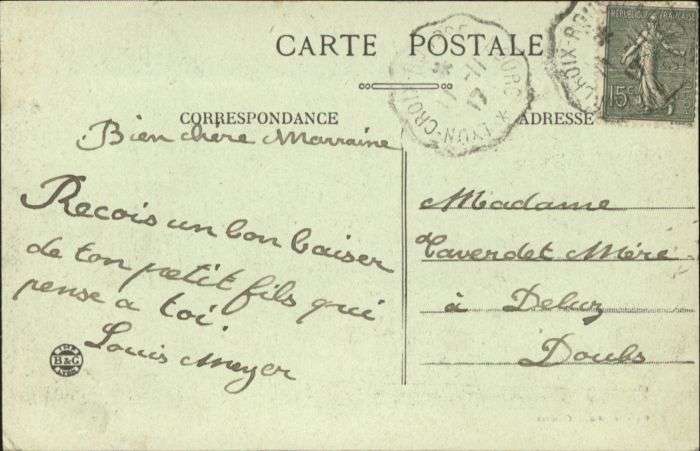 CARTE POSTALE
CORRESPONDANCE
Bien chère Marraine
Recois un bon baiser
de ton petit fils qui
pense a toi
Louis Meyer
B&G
ADRESSE
Madame
Taverdet Mère
à Deluz
Doubs
LYON-CROIX
11-11
17
RÉPUBLIQUE FRANÇAISE
15c
CROIX-ROU